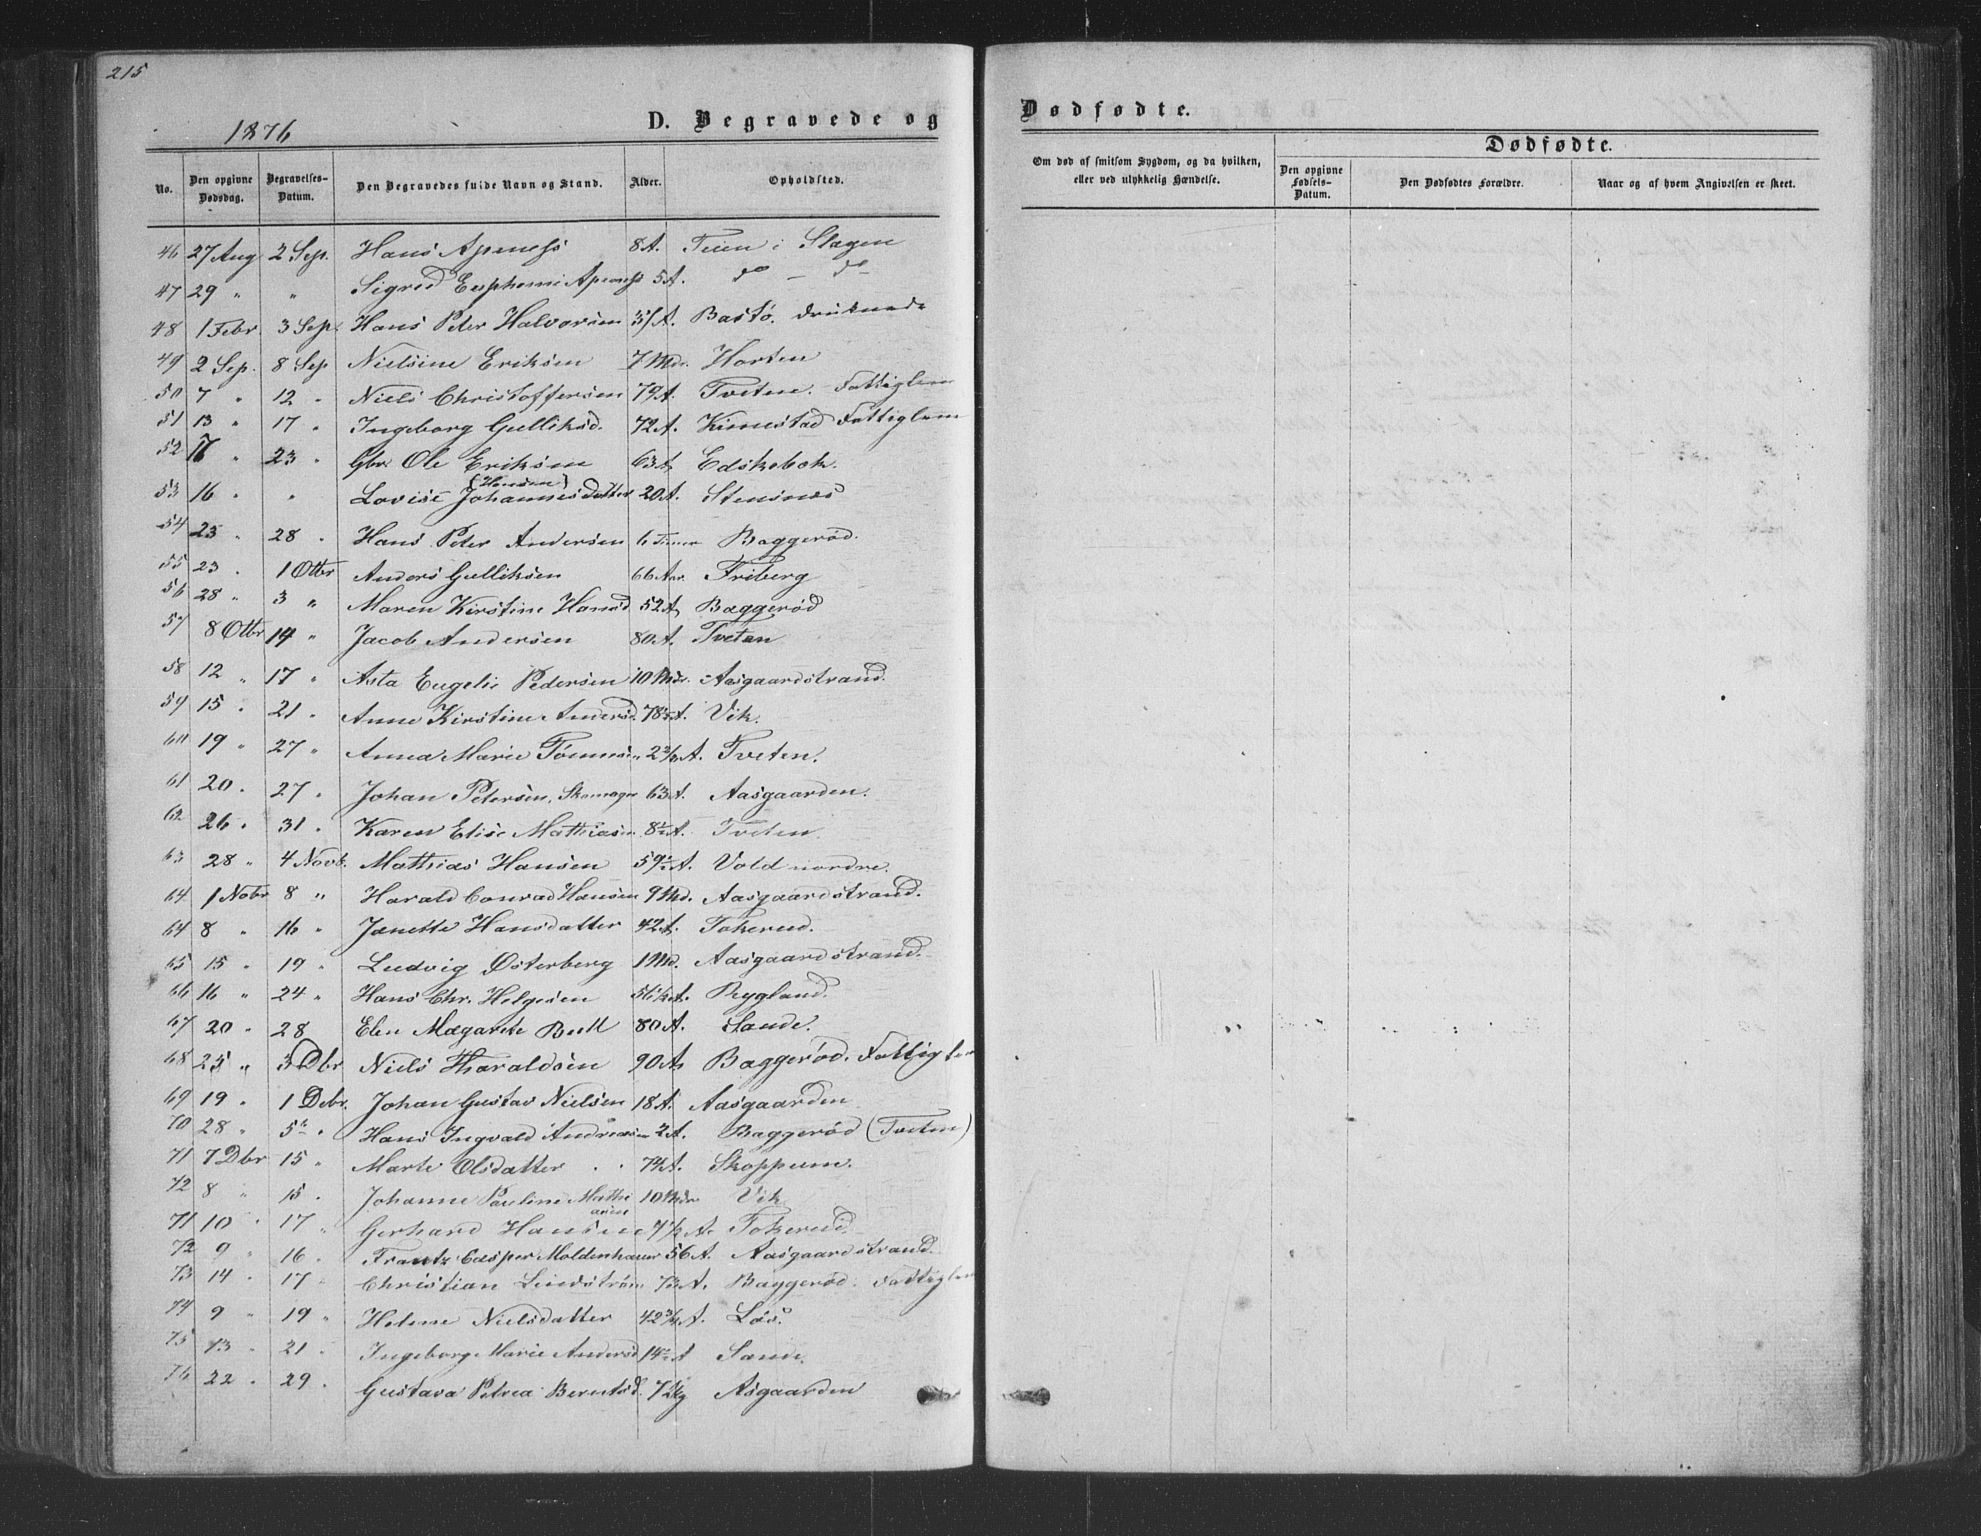 215
1876
D. Begravede og
No. Den opgivne Dødsdag. Begravelses-Datum. Den Begravedes fulde Navn og Stand. Alder. Opholdsted.
46 27 Aug 2 Sep. Hans Apeness 8 A. Teien i Slagen
47 29 " " Sigrid Apeness 5 A. do — do
48 1 Febr 3 Sep. Hans Peter Halvorsen 31 A. Bastø. druknede
49 2 Sep. 8 Sep Nielsine Eriksen 7 Md. Horten
50 7 " 12 " Niels Christoffersen 79 A. Tveten. Fattiglem
51 13 " 17 " Ingeborg Gulliksd. 72 A. Fattiglem
52 " 23 " Gbr. Ole Eriksen 63 A Edskebek.
53 16 " " Lovise Johannesdatter (Hansen) 20 A. Stensnæs
54 23 " 28 " Hans Peter Andersen 6 Timer Baggerød.
55 23 . 1 Otbr Anders Gulliksen 66 Aar. Friberg
56 28 " 3 " Maren Kirstine Hansd 52 A. Baggerød
57 8 Otbr 14 " Jacob Andersen 80 A. Tvetan
58 12 " 17 " Asta Engelie Pedersen 10 Mdr. Aasgaardstrand.
59 15 . 21 " Anne Kirstine Andersd. 78½ A. Vik.
60 19 " 27 " Anna Marie A. Tveten.
61 20 . 27 " Johan Petersen, Skomager 63 A. Aasgaarden.
62 26 . 31 . Karen Elise Mathiasen 8½ A. Tveten.
63 28 " 4 Novb. Mathias Hansen 59½ A. Vold nordre.
64 1 Nobr 8 " Harald Conrad Hansen 9 Md. Aasgaardstrand.
64 8 " 16 " Janette Hansdatter 42 A. Tokerud.
65 15 " 19 " Ludvig Østerberg 1 Md. Aasgaardstrand.
66 16 " 24 " Hans Chr. Helgesen A. Rygland.
67 20 " 28 Elen Magarete Bull 80 A. Sande.
68 25 " 3 Dbr Niels Haraldsen 90 A Baggerød. Fattiglem
69 19 . 1 Debr. Johan Gustav Nielsen 18 A. Aasgaarden
70 28 " 5 " Hans Ingvald Andreasen 2 A. Baggerød (Tveten)
71 7 Dbr 15 " Marte Olsdatter . . 74 A. Skoppum.
72 8 " 15 . Johanne Pauline Mathiasen 10 Mdr Vik
71 10 " 17 " Gerhard Hansen A. Tokerud.
72 9 " 16 . Frantz Casper Moldenhauer 56 A. Aasgaardstrand.
73 14 . 17 " Christian Lindstrøm 73 A. Baggerød. Fattiglem
74 9 " 19 " Helene Nielsdatter 42¾ A. Løs.
75 13 . 21 . Ingeborg Marie Andersd 14½ A Sande.
76 22 . 29 . Gustava Petrea Berntsd. Asgaarden
Dødfødte.
Om død af smitsom Sygdom, og da hvilken, eller ved ulykkelig Hændelse.
Dødfødte.
Den opgivne Fødsels-Datum. Den Dødfødtes Forældre. Naar og af hvem Angivelsen er skeet.